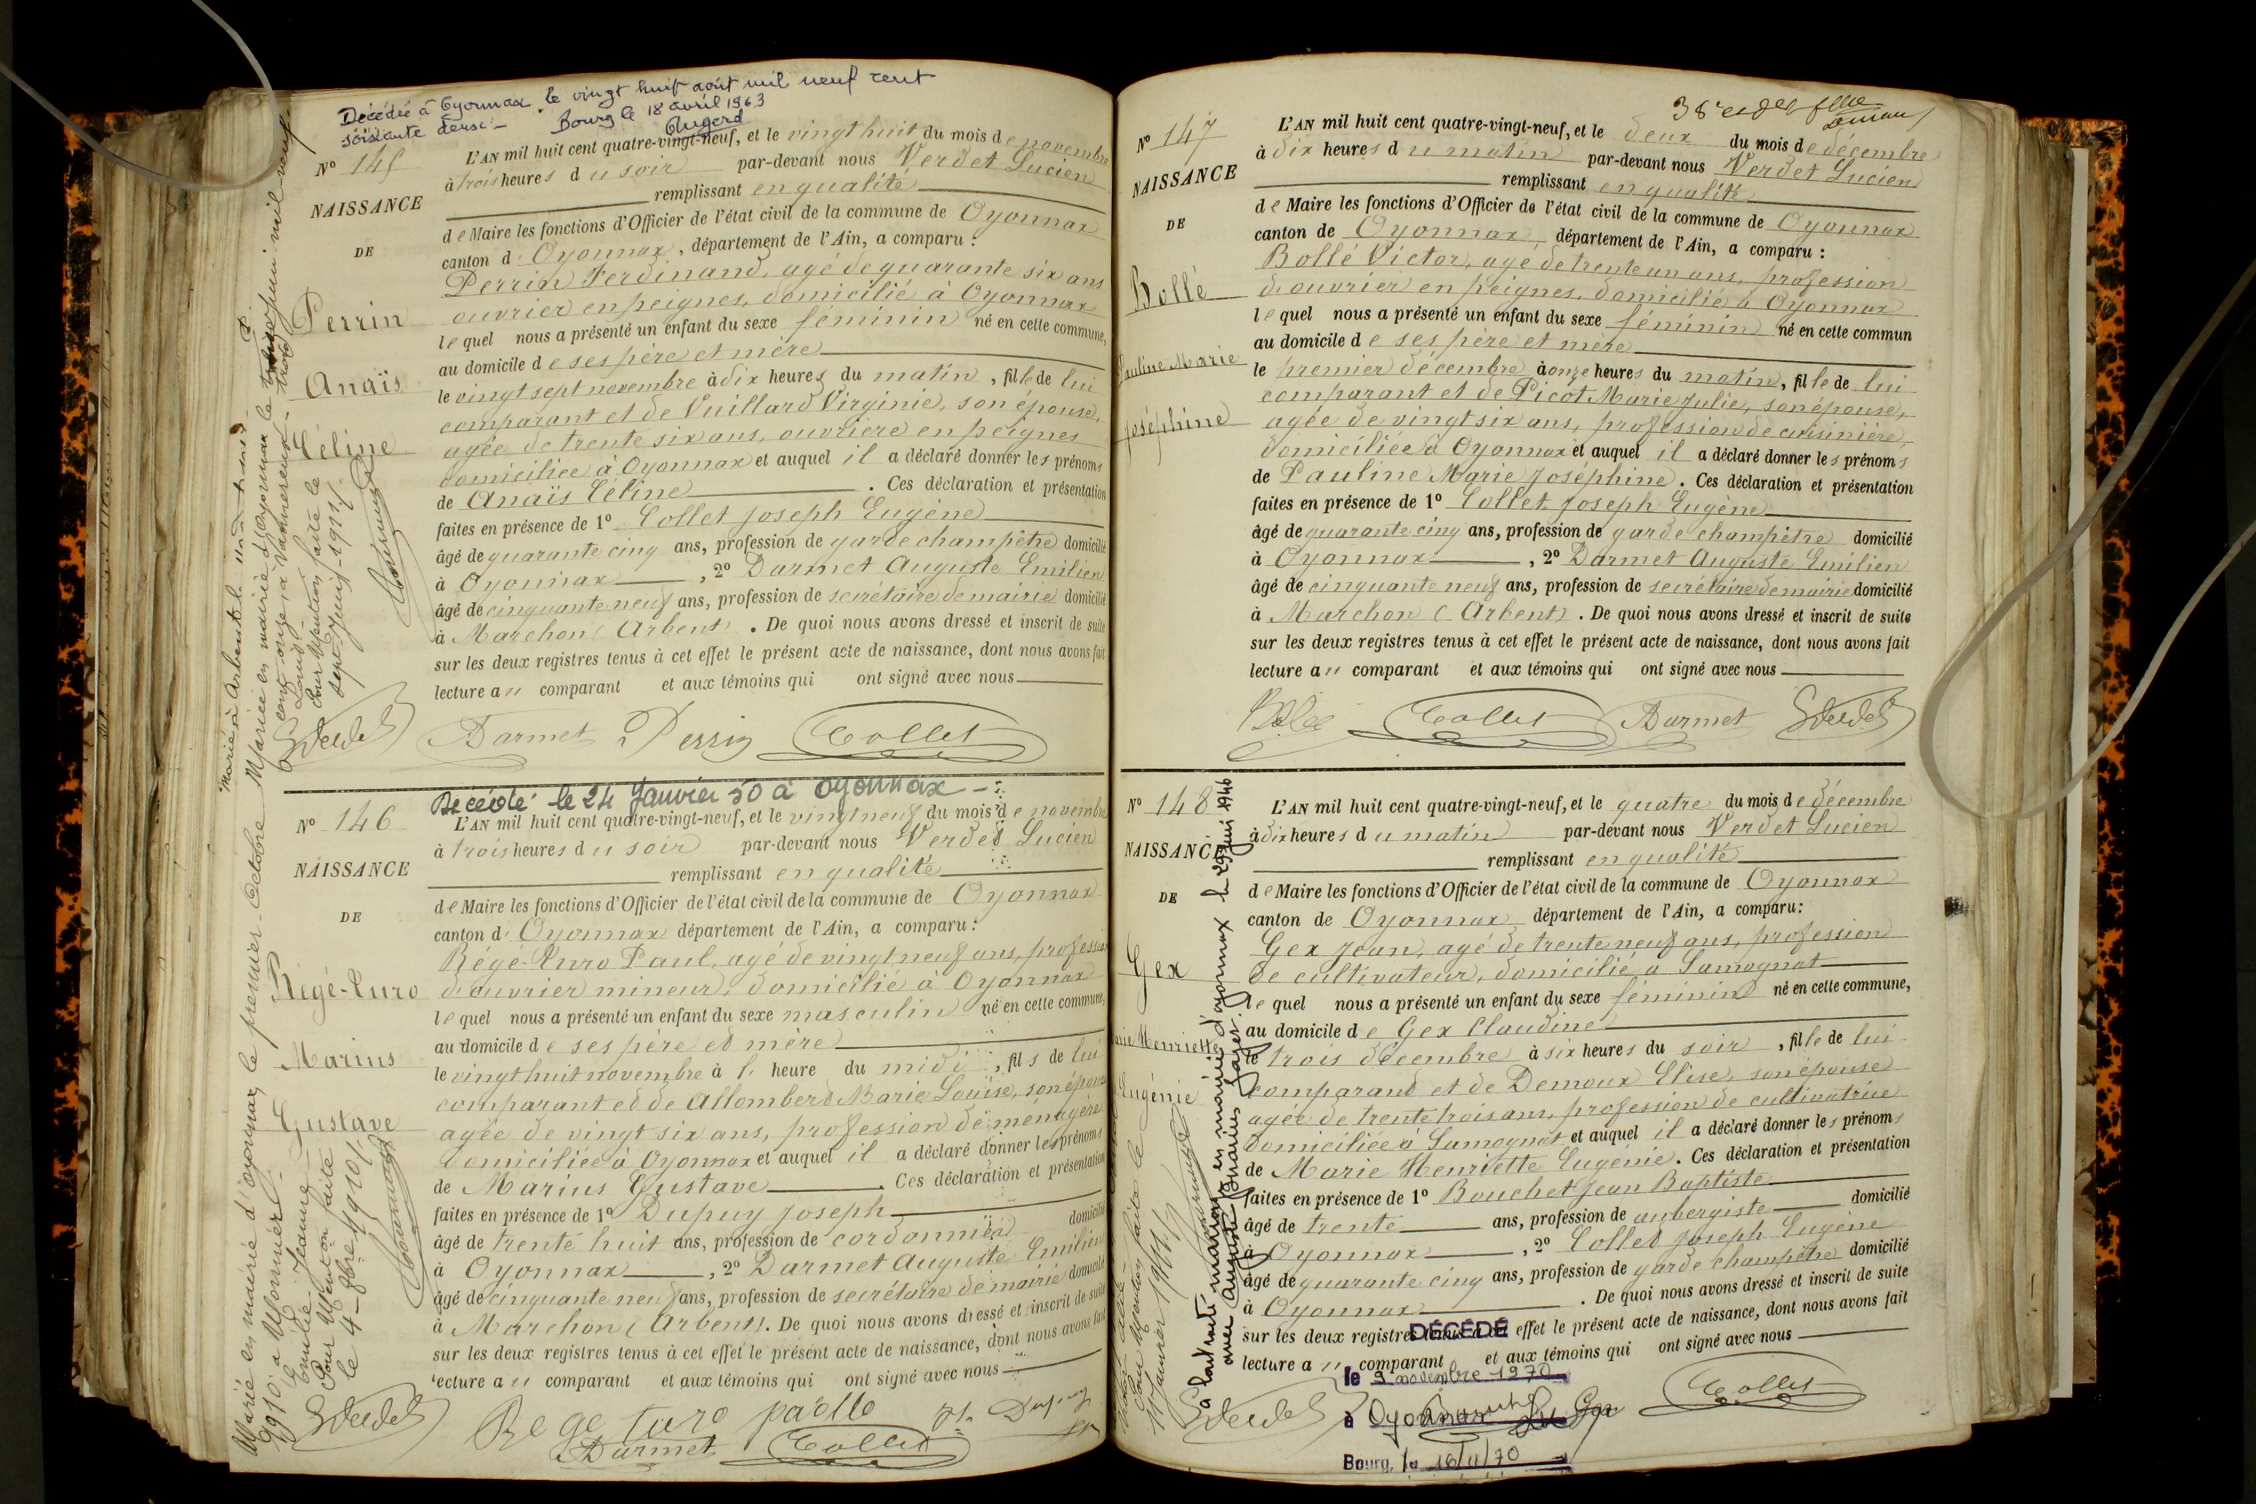 Décédée à Oyonnax le vingt huit août mil neuf cent
soixante deux - Bourg le 18 avril 1963
N° 145
NAISSANCE
DE
Perrin
Anaïs
Céline
L'AN mil huit cent quatre-vingt-neuf, et le vingt huit du mois de novembre
à trois heures du soir par-devant nous Verdet Lucien
remplissant en qualité
de Maire les fonctions d'Officier de l'état civil de la commune de Oyonnax
canton d' Oyonnax, département de l'Ain, a comparu :
Perrin Ferdinand, agé de quarante six ans
ouvrier en peignes, domicilié à Oyonnax
lequel nous a présenté un enfant du sexe féminin né en cette commune,
au domicile de ses père et mère
le vingt sept novembre à dix heures du matin, fille de lui
comparant et de Vuillard Virginie, son épouse,
agée de trente six ans, ouvriere en peignes
domiciliée à Oyonnax et auquel il a déclaré donner les prénoms
de Anaïs Céline. Ces déclaration et présentation
faites en présence de 1° Collet Joseph Eugène
âgé de quarante cinq ans, profession de garde champêtre domicilié
à Oyonnax, 2° Darmet Auguste Emilien
âgé de cinquante neuf ans, profession de secrétaire de mairie domicilié
à Marchon (Arbent). De quoi nous avons dressé et inscrit de suite
sur les deux registres tenus à cet effet le présent acte de naissance, dont nous avons fait
lecture au comparant et aux témoins qui ont signé avec nous
Verdet Darmet Perrin Collet
Mariée en mairie d'Oyonnax le
Pour Mention faite le
sept Juin 1911
Décédé le 24 Janvier 50 à Oyonnax
N° 146
NAISSANCE
DE
Régé-Turo
Marius
Gustave
L'AN mil huit cent quatre-vingt-neuf, et le vingt neuf du mois de novembre
à trois heures du soir par-devant nous Verdet Lucien
remplissant en qualité
de Maire les fonctions d'Officier de l'état civil de la commune de Oyonnax
canton d' Oyonnax département de l'Ain, a comparu :
Régé-Turo Paul, agé de vingt neuf ans, profession
d'ouvrier mineur, domicilié à Oyonnax
lequel nous a présenté un enfant du sexe masculin né en cette commune,
au domicile de ses père et mère
le vingt huit novembre à l' heure du midi, fils de lui
comparant et de Allombert Marie Louise, son épouse
agée de vingt six ans, profession de ménagère
domiciliée à Oyonnax et auquel il a déclaré donner les prénoms
de Marius Gustave. Ces déclaration et présentation
faites en présence de 1° Dupuy Joseph
âgé de trente huit ans, profession de cordonnier domicilié
à Oyonnax, 2° Darmet Auguste Emilien
âgé de cinquante neuf ans, profession de secrétaire de mairie domicilié
à Marchon (Arbent). De quoi nous avons dressé et inscrit de suite
sur les deux registres tenus à cet effet le présent acte de naissance, dont nous avons fait
lecture au comparant et aux témoins qui ont signé avec nous
Verdet Rege turo paollo Dupuy
Darmet Collet
Marié en mairie d'Oyonnax le premier Octobre
1910 à Monnier
Emilie Jeanne
Pour Mention faite
le 4 8bre 1910
N° 147
NAISSANCE
DE
Bollé
Pauline Marie
Joséphine
L'AN mil huit cent quatre-vingt-neuf, et le deux du mois de décembre
à dix heures du matin par-devant nous Verdet Lucien
remplissant en qualité
de Maire les fonctions d'Officier de l'état civil de la commune de Oyonnax
canton de Oyonnax département de l'Ain, a comparu :
Bollé Victor, agé de trente un ans, profession
d'ouvrier en peignes, domicilié à Oyonnax
lequel nous a présenté un enfant du sexe féminin né en cette commun
au domicile de ses père et mère
le premier décembre à onze heures du matin, fille de lui
comparant et de Picot Marie Julie, son épouse,
agée de vingt six ans, profession de cuisinière,
domiciliée à Oyonnax et auquel il a déclaré donner les prénoms
de Pauline Marie Joséphine. Ces déclaration et présentation
faites en présence de 1° Collet Joseph Eugène
âgé de quarante cinq ans, profession de garde champêtre domicilié
à Oyonnax, 2° Darmet Auguste Emilien
âgé de cinquante neuf ans, profession de secrétaire de mairie domicilié
à Marchon (Arbent). De quoi nous avons dressé et inscrit de suite
sur les deux registres tenus à cet effet le présent acte de naissance, dont nous avons fait
lecture au comparant et aux témoins qui ont signé avec nous
Bollé Collet Darmet Verdet
N° 148
NAISSANCE
DE
Gex
Marie Henriette
Eugénie
L'AN mil huit cent quatre-vingt-neuf, et le quatre du mois de décembre
à dix heures du matin par-devant nous Verdet Lucien
remplissant en qualité
de Maire les fonctions d'Officier de l'état civil de la commune de Oyonnax
canton de Oyonnax département de l'Ain, a comparu :
Gex Jean, agé de trente neuf ans, profession
de cultivateur, domicilié à Samognat
lequel nous a présenté un enfant du sexe féminin né en cette commune,
au domicile de Gex Claudine
le trois décembre à six heures du soir, fille de lui
comparand et de Demoux Elise, son épouse
agée de trente trois ans, profession de cultivatrice
domiciliée à Samognat et auquel il a déclaré donner les prénoms
de Marie Henriette Eugénie. Ces déclaration et présentation
faites en présence de 1° Bouchet Jean Baptiste
âgé de trente ans, profession de aubergiste domicilié
à Oyonnax, 2° Collet Joseph Eugène
âgé de quarante cinq ans, profession de garde champêtre domicilié
à Oyonnax. De quoi nous avons dressé et inscrit de suite
sur les deux registres tenus à cet effet le présent acte de naissance, dont nous avons fait
lecture au comparant et aux témoins qui ont signé avec nous
DÉCÉDÉ
le 9 novembre 1970
à Oyonnax
Bourg, le 16/11/70
Verdet Gex Collet
A contracté mariage en mairie d'Oyonnax le 29 juin 1946
avec Auguste